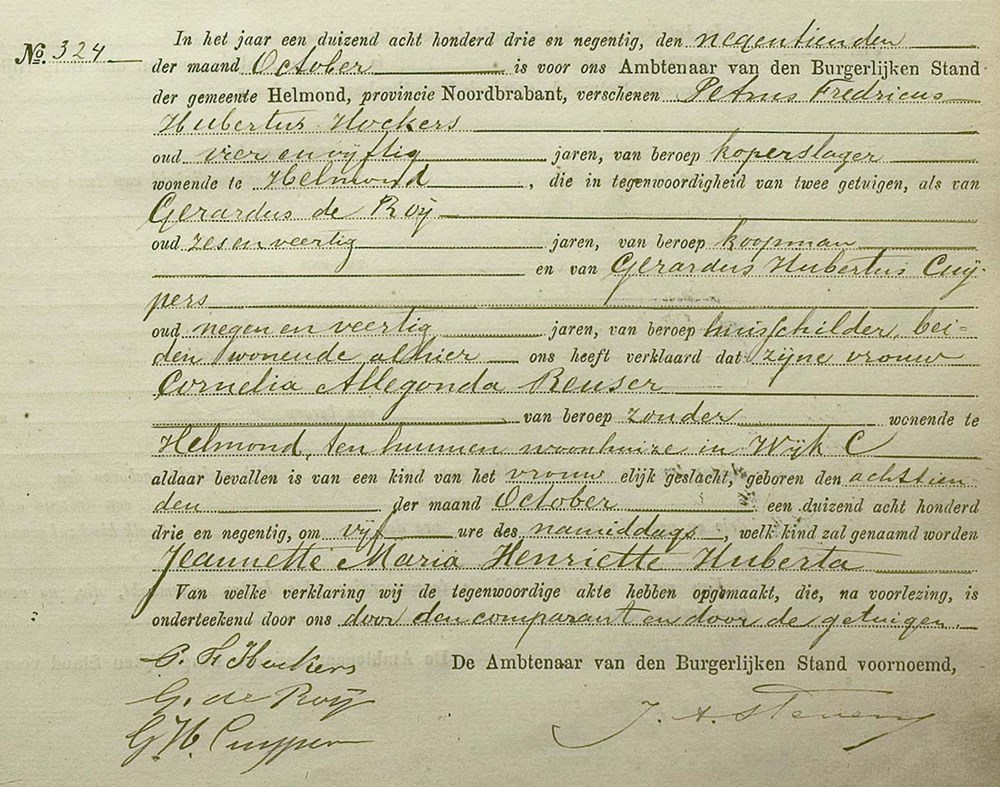 No. 324 In het jaar een duizend acht honderd drie en negentig, den negentienden
der maand October is voor ons Ambtenaar van den Burgerlijken Stand
der gemeente Helmond, provincie Noordbrabant, verschenen Petrus Fredricus
Hubertus Hockers
oud vier en vijftig jaren, van beroep koperslager
wonende te Helmond, die in tegenwoordigheid van twee getuigen, als van
Gerardus de Roij
oud zes en veertig jaren, van beroep koopman
en van Gerardus Hubertus Cuij-
pers
oud negen en veertig jaren, van beroep huisschilder, bei-
den wonende alhier ons heeft verklaard dat zijne vrouw
Cornelia Allegonda Reuser
van beroep zonder wonende te
Helmond, ten hunnen woonhuize in Wijk C
aldaar bevallen is van een kind van het vrouwelijk geslacht, geboren den achttien
den der maand October een duizend acht honderd
drie en negentig, om vijf ure des namiddags, welk kind zal genaamd worden
Jeannette Maria Henriette Huberta
Van welke verklaring wij de tegenwoordige akte hebben opgemaakt, die, na voorlezing, is
onderteekend door ons door den comparant en door de getuigen.
P. F. Hockers
De Ambtenaar van den Burgerlijken Stand voornoemd,
G. de Roij
J. A. Stevens
G. H. Cuypers